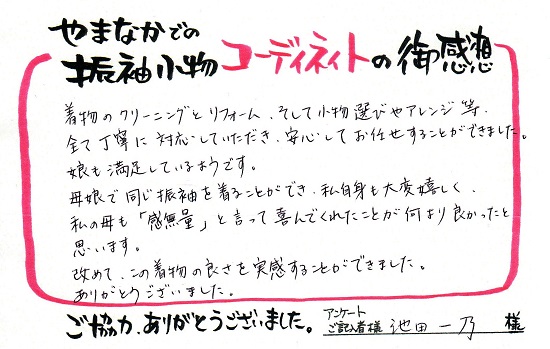 やまなかでの
振袖小物コーディネイトの御感想
着物のクリーニングとリフォーム、そして小物選びやアレンジ等、
全て丁寧に対応していただき、安心してお任せすることができました。
娘も満足しているようです。
母娘で同じ振袖を着ることができ、私自身も大変嬉しく、
私の母も「感無量」と言って喜んでくれたことが何より良かったと
思います。
改めて、この着物の良さを実感することができました。
ありがとうございました。
ご協力、ありがとうございました。
アンケート
ご記入者様 池田 一乃 様